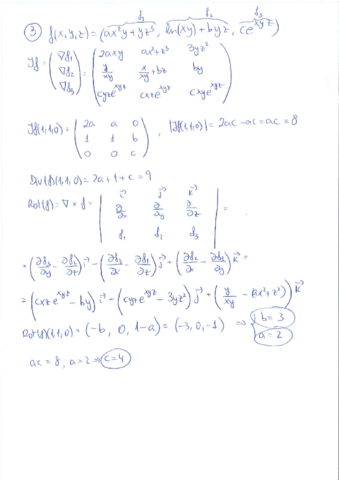 f₁ f₂ f₃
③ f(x,y,z) = (ax²y+yz³, ln(xy)+byz, ce^xyz)
Jf = (∇f₁ ∇f₂ ∇f₃) = (2axy ax²+z³ 3yz²
y/xy x/xy+bz by
cyze^xyz cxze^xyz cxye^xyz)
Jf(1,1,0) = (2a a 0
1 1 b
0 0 c) , |Jf(1,1,0)| = 2ac-ac = ac = 8
Div(f)(1,1,0) = 2a+1+c = 9
Rot(f) = ∇ × f = | i⃗ j⃗ k⃗
∂/∂x ∂/∂y ∂/∂z
f₁ f₂ f₃ | =
= (∂f₃/∂y - ∂f₂/∂z) i⃗ - (∂f₃/∂x - ∂f₁/∂z) j⃗ + (∂f₂/∂x - ∂f₁/∂y) k⃗ =
= (cxze^xyz - by) i⃗ - (cyze^xyz - 3yz²) j⃗ + (y/xy - (ax²+z³)) k⃗
Rot(f)(1,1,0) = (-b, 0, 1-a) = (-3, 0, -1) ⇒ b = 3
a = 2
ac = 8, a = 2 ⇒ c = 4